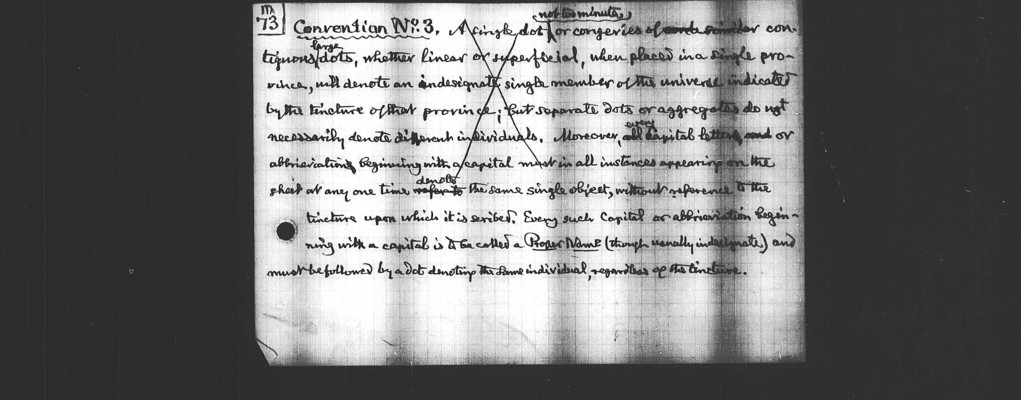 M
73
Convention No. 3. A single dot, not too minute, or congeries of and similar con-
tiguous large dots, whether linear or superficial, when placed in a single pro-
vince, will denote an indesignate single member of the universe indicated
by the tincture of that province; but separate dots or aggregates do not
necessarily denote different individuals. Moreover, all every capital letters, and or
abbreviations beginning with a capital must in all instances appearing on the
sheet at any one time refer to denote the same single object, without reference to the
tincture upon which it is scribed. Every such capital or abbreviation begin-
ning with a capital is to be called a Proper Name (though usually indesignate,) and
must be followed by a dot denoting the same individual, regardless of the tincture.